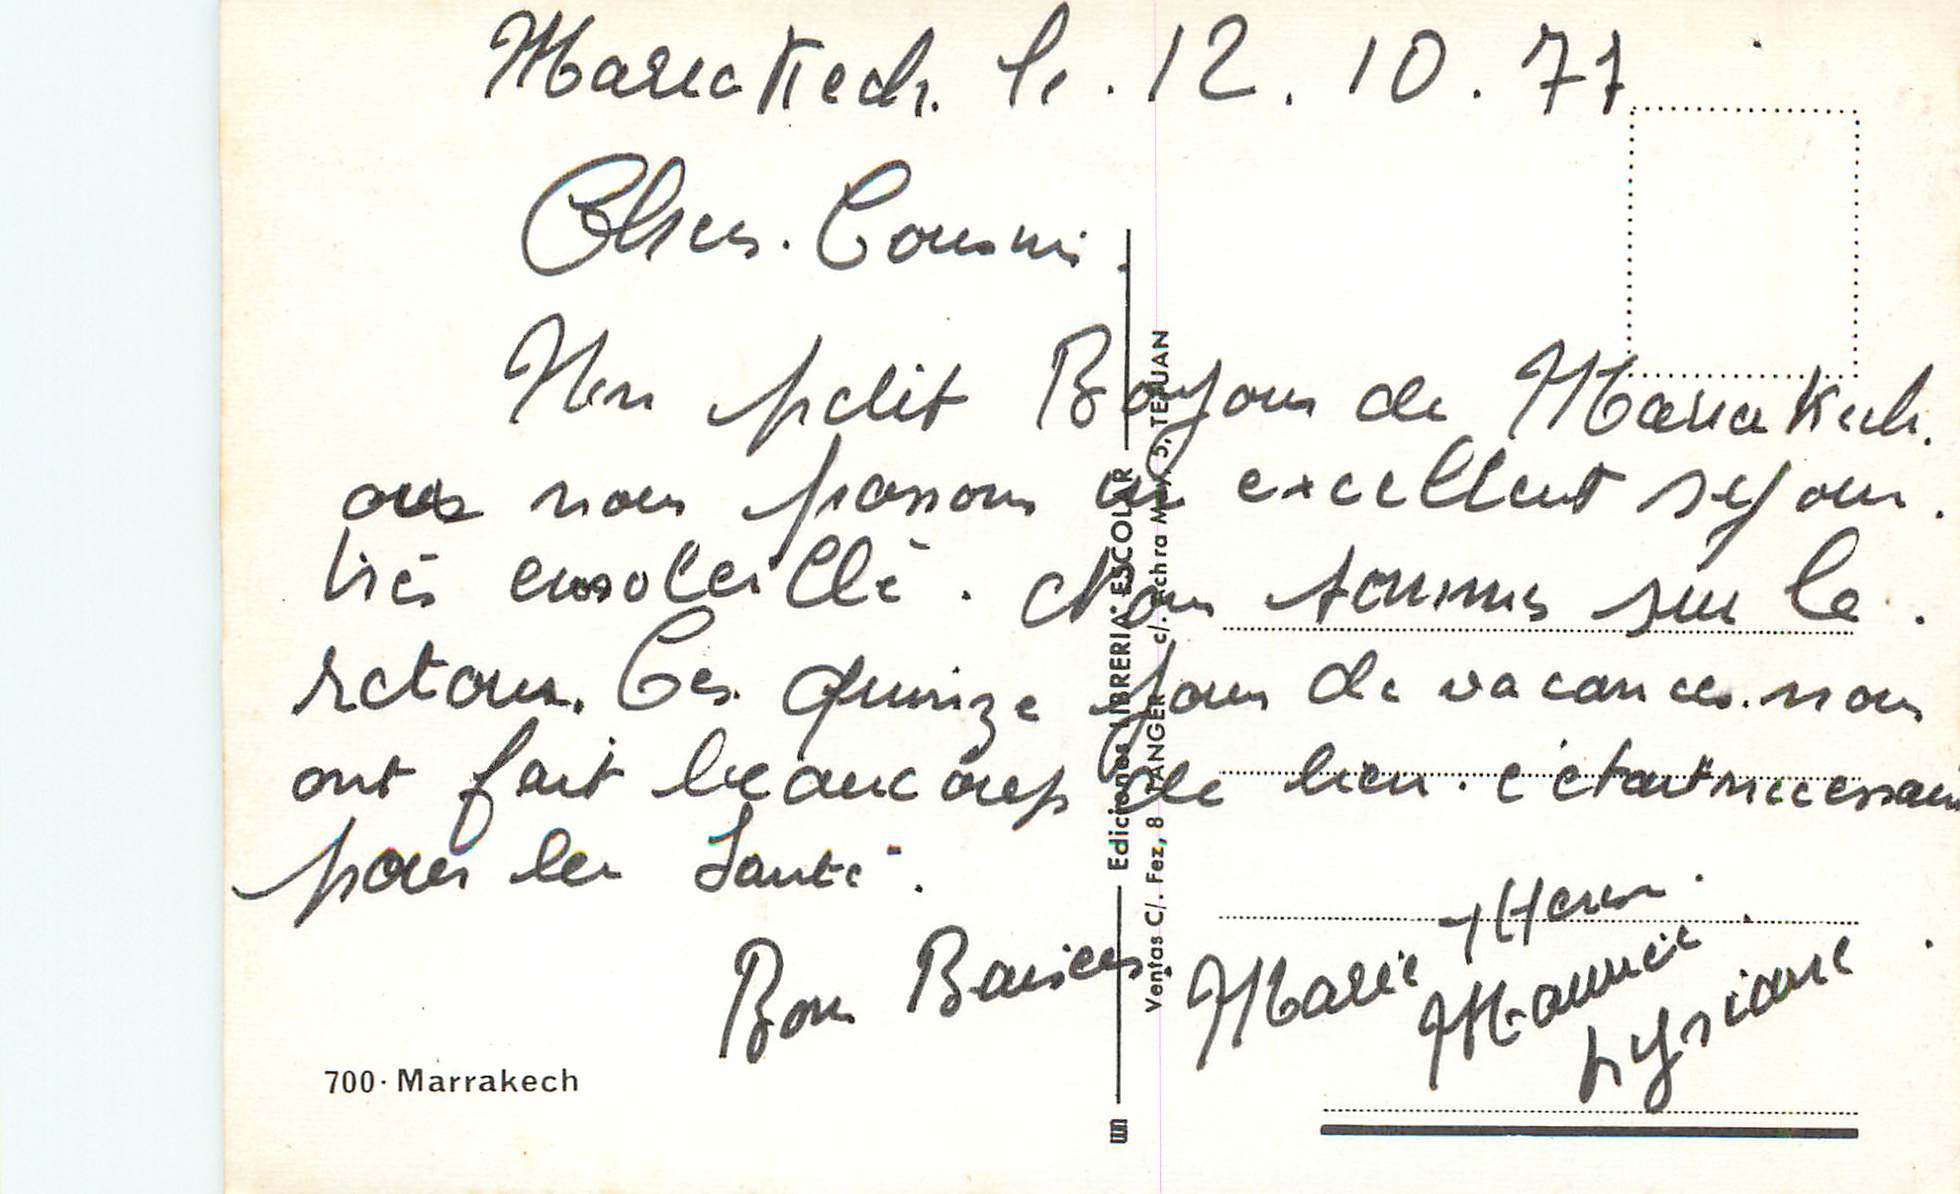 Marrakech. le. 12. 10. 71
Chers. Cousins.
Un petit Bonjour de Marrakech.
où nous passons un excellent sejour.
très ensoleillé. Nous sommes sur le.
retour. Ces. quinze jours de vacances. nous
ont fait beaucoup de bien. c'était necessaire
pour la Santé.
Bons Baisers. Marie Therese.
Maurice
Lysiane
700· Marrakech
Ediciones LIBRERIA ESCOLAR
Ventas C/. Fez, 8 TANGER c/. Achra Mayo 5, TETUAN